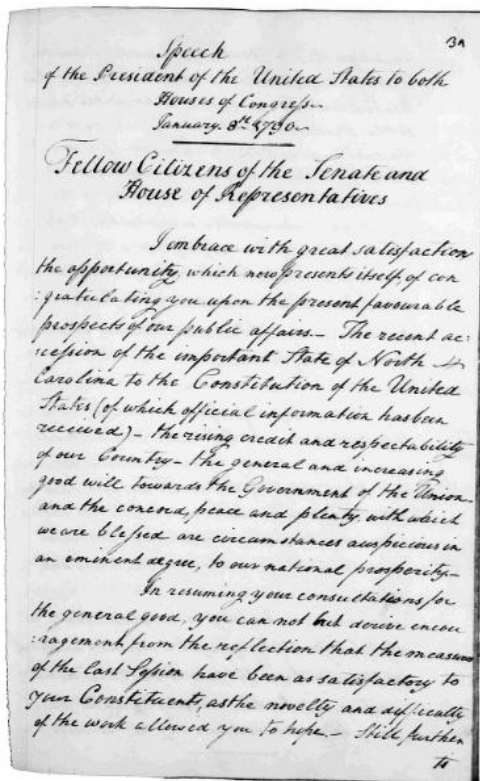 39
Speech
of the President of the United States to both
Houses of Congress
January. 8th. 1790
Fellow Citizens of the Senate and
House of Representatives
I embrace with great satisfaction
the opportunity, which now presents itself, of con
:gratulating you upon the present favourable
prospects of our public affairs.– The recent ac:
:cession of the important State of North
Carolina to the Constitution of the United
States (of which official information has been
received) – the rising credit and respectability
of our Country – the general and increasing
good will towards the Government of the Union –
and the concord, peace and plenty, with which
we are blessed are circumstances auspicious in
an eminent degree, to our national prosperity –
In resuming your consultations for
the general good, you can not but derive encou
:ragement from the reflection that the measures
of the last Session have been as satisfactory to
your Constituents, as the novelty and difficulty
of the work allowed you to hope. – Still further
to